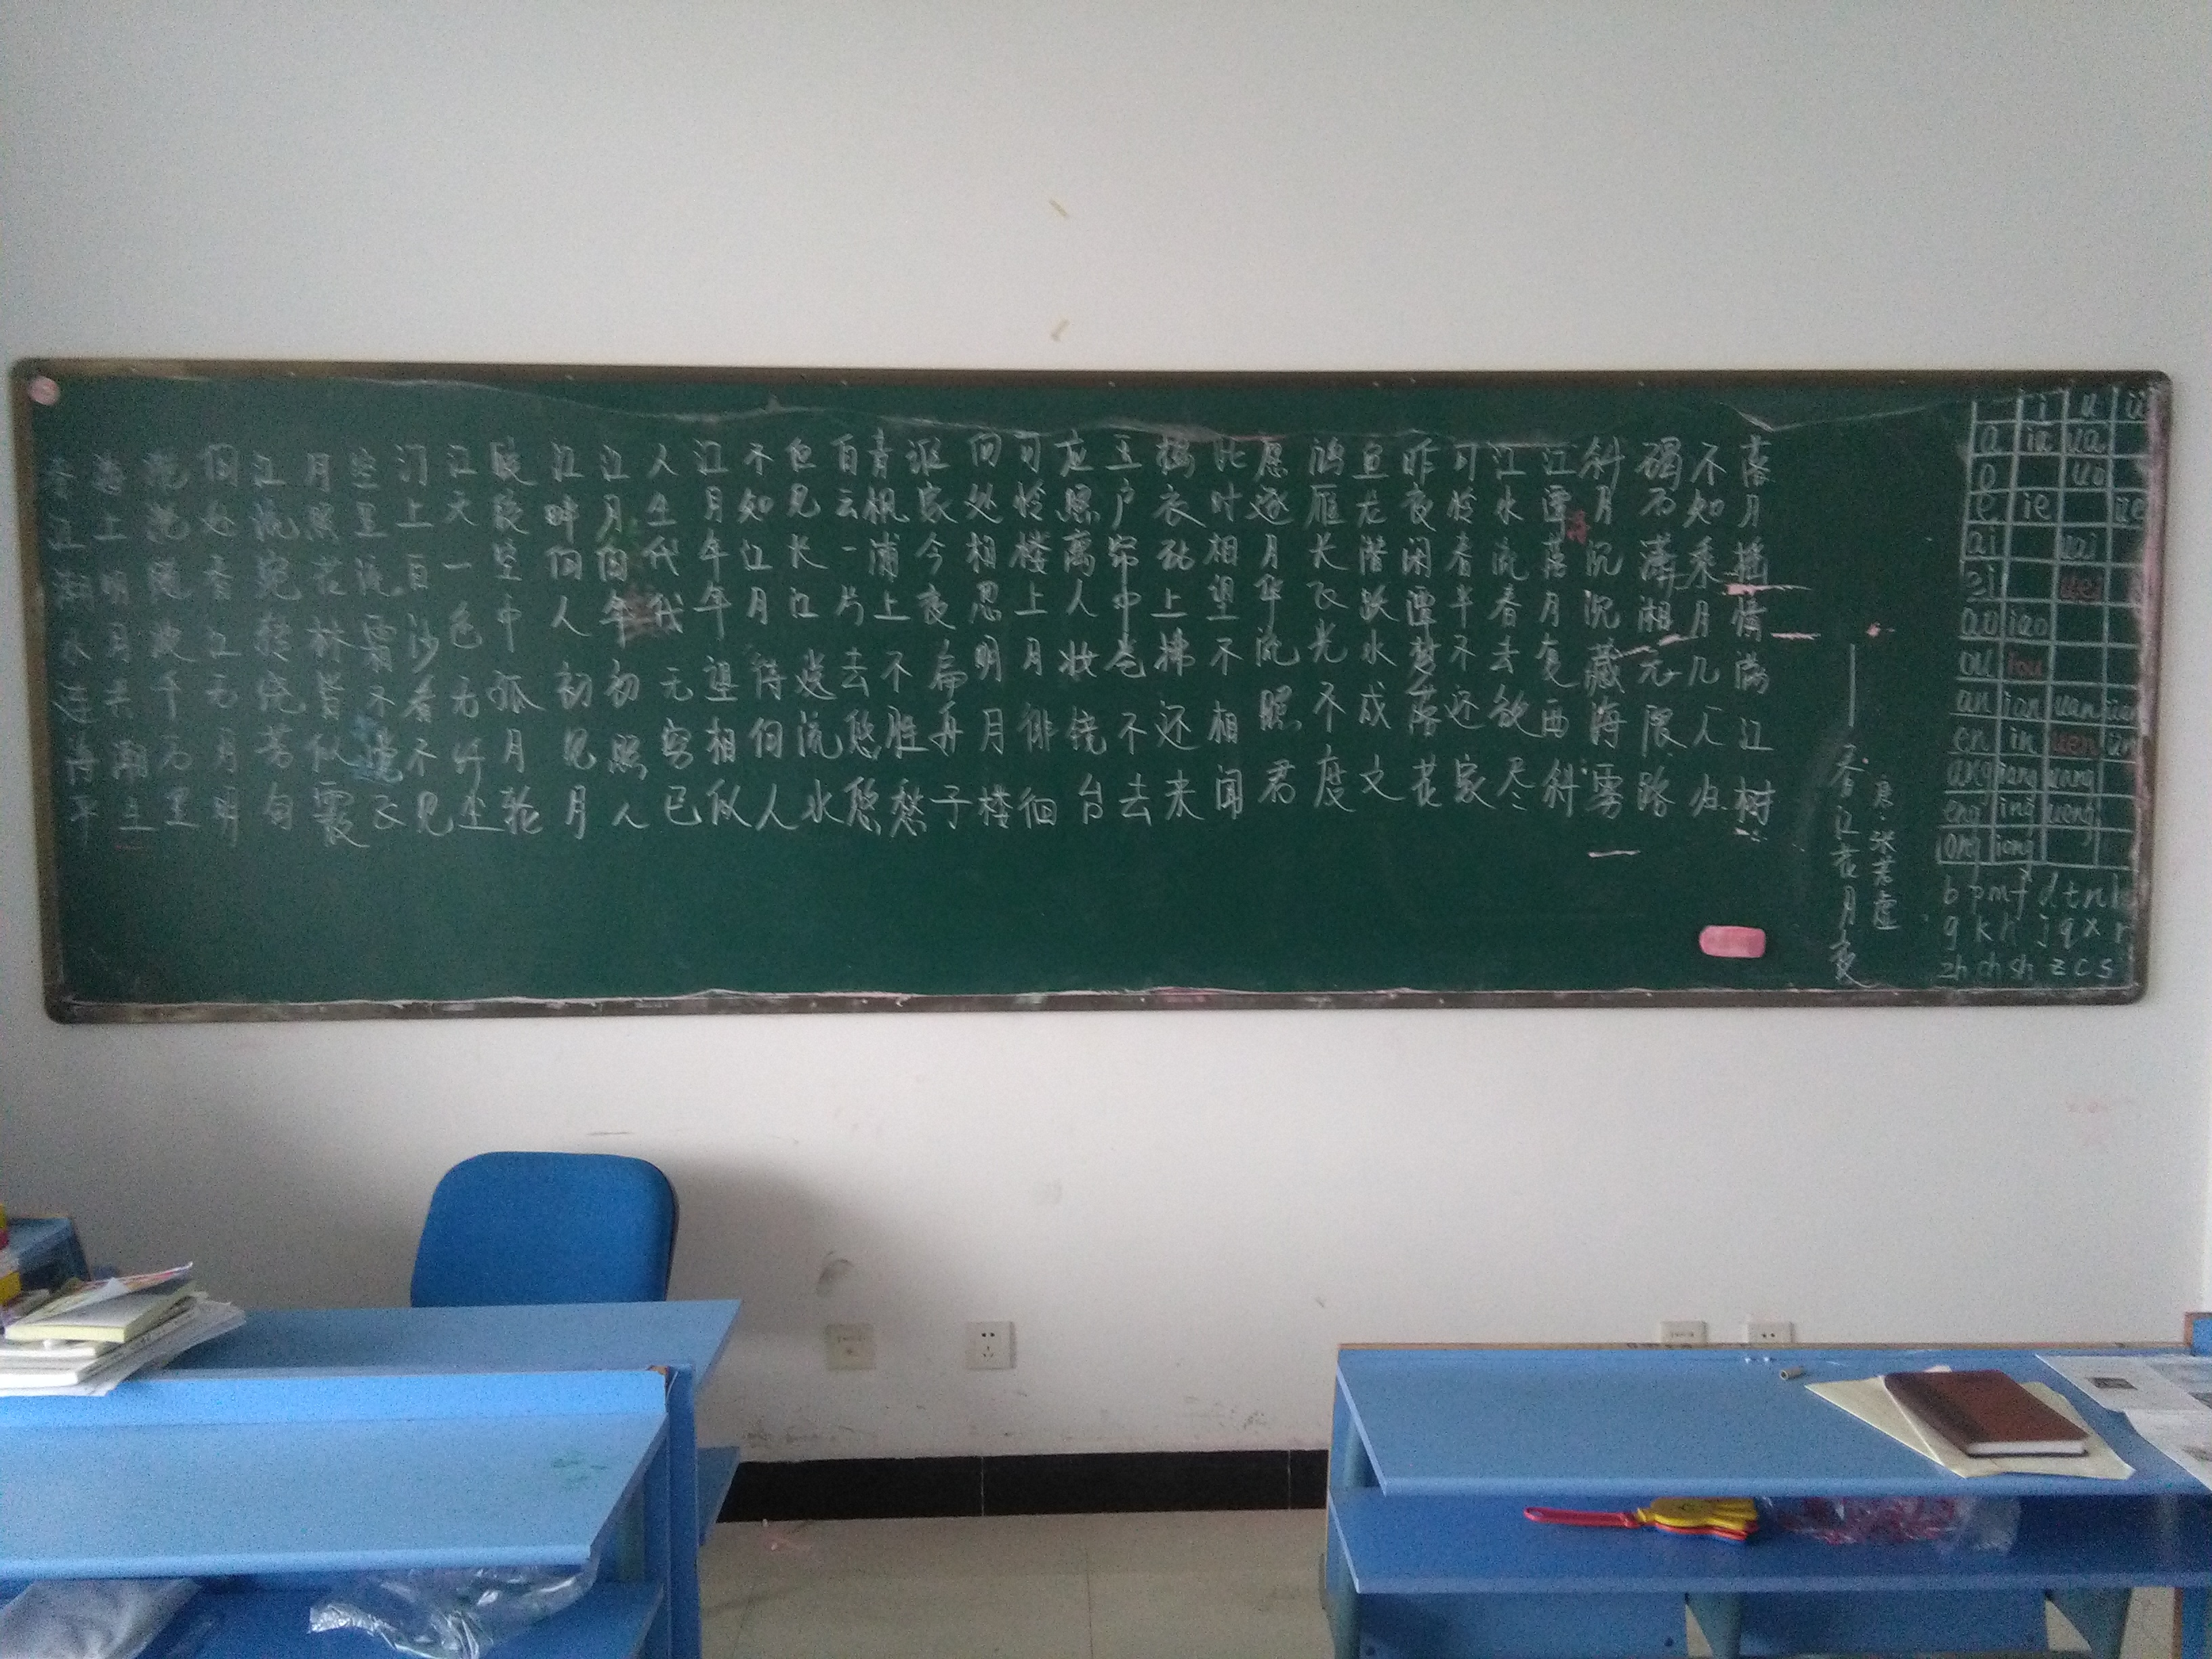 春江潮水连海平
海上明月共潮生
滟滟随波千万里
何处春江无月明
江流宛转绕芳甸
月照花林皆似霰
空里流霜不觉飞
汀上白沙看不见
江天一色无纤尘
皎皎空中孤月轮
江畔何人初见月
江月何年初照人
人生代代无穷已
江月年年望相似
不知江月待何人
但见长江送流水
白云一片去悠悠
青枫浦上不胜愁
谁家今夜扁舟子
何处相思明月楼
可怜楼上月徘徊
应照离人妆镜台
玉户帘中卷不去
捣衣砧上拂还来
此时相望不相闻
愿逐月华流照君
鸿雁长飞光不度
鱼龙潜跃水成文
昨夜闲潭梦落花
可怜春半不还家
江水流春去欲尽
江潭落月复西斜
斜月沉沉藏海雾
碣石潇湘无限路
不知乘月几人归
落月摇情满江树
——春江花月夜
唐·张若虚
i u ü
a ia ua
o uo
e ie üe
ai uai
ei uei
ao iao
ou iou
an ian uan üan
en in uen ün
ang iang uang
eng ing ueng
ong iong
b p m f d t n l
g k h j q x r
zh ch sh z c s